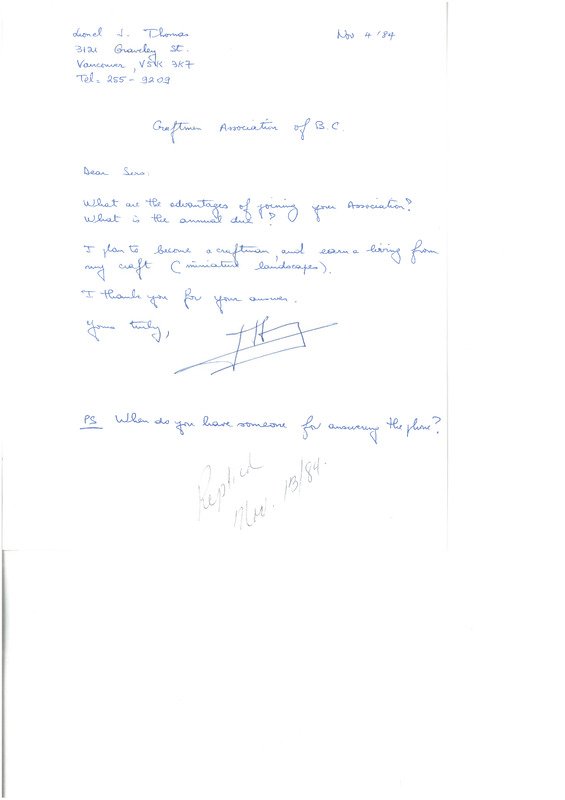 Lionel J. Thomas
Nov 4 '84
3121 Graveley St.
Vancouver, V5K 3K7
Tel: 255-9209
Craftmen Association of B.C.
Dear Sirs.
What are the advantages of joining your Association?
What is the annual due?
I plan to become a craftman, and earn a living from
my craft (miniature landscapes).
I thank you for your answer.
Yours truly,
PS When do you have someone for answering the phone?
Replied
Nov. 13/84.